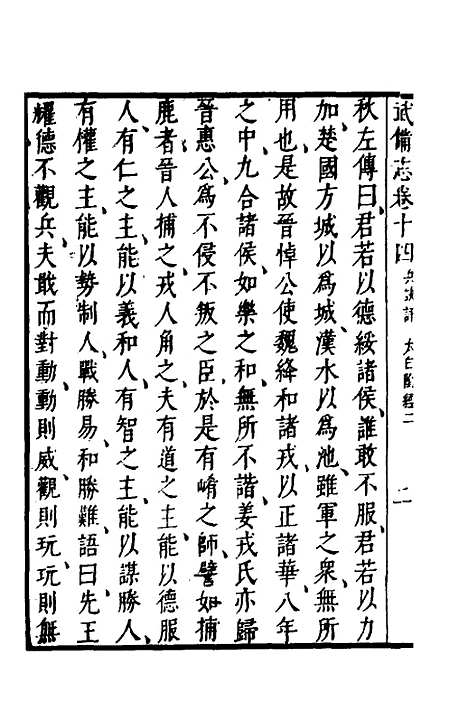 武備志卷十四 兵訣評 太白陰經二 二
秋左傳曰君若以德綏諸侯誰敢不服君若以力
加楚國方城以爲城漢水以爲池雖軍之衆無所
用也是故晉悼公使魏絳和諸戎以正諸華八年
之中九合諸侯如樂之和無所不諧姜戎氏亦歸
晉惠公爲不侵不叛之臣於是有崤之師譬如捕
鹿者晉人捕之戎人角之夫有道之主能以德服
人有仁之主能以義和人有智之主能以謀勝人
有權之主能以勢制人戰勝易和勝難語曰先王
耀德不觀兵夫戢而對動動則威觀則玩玩則無